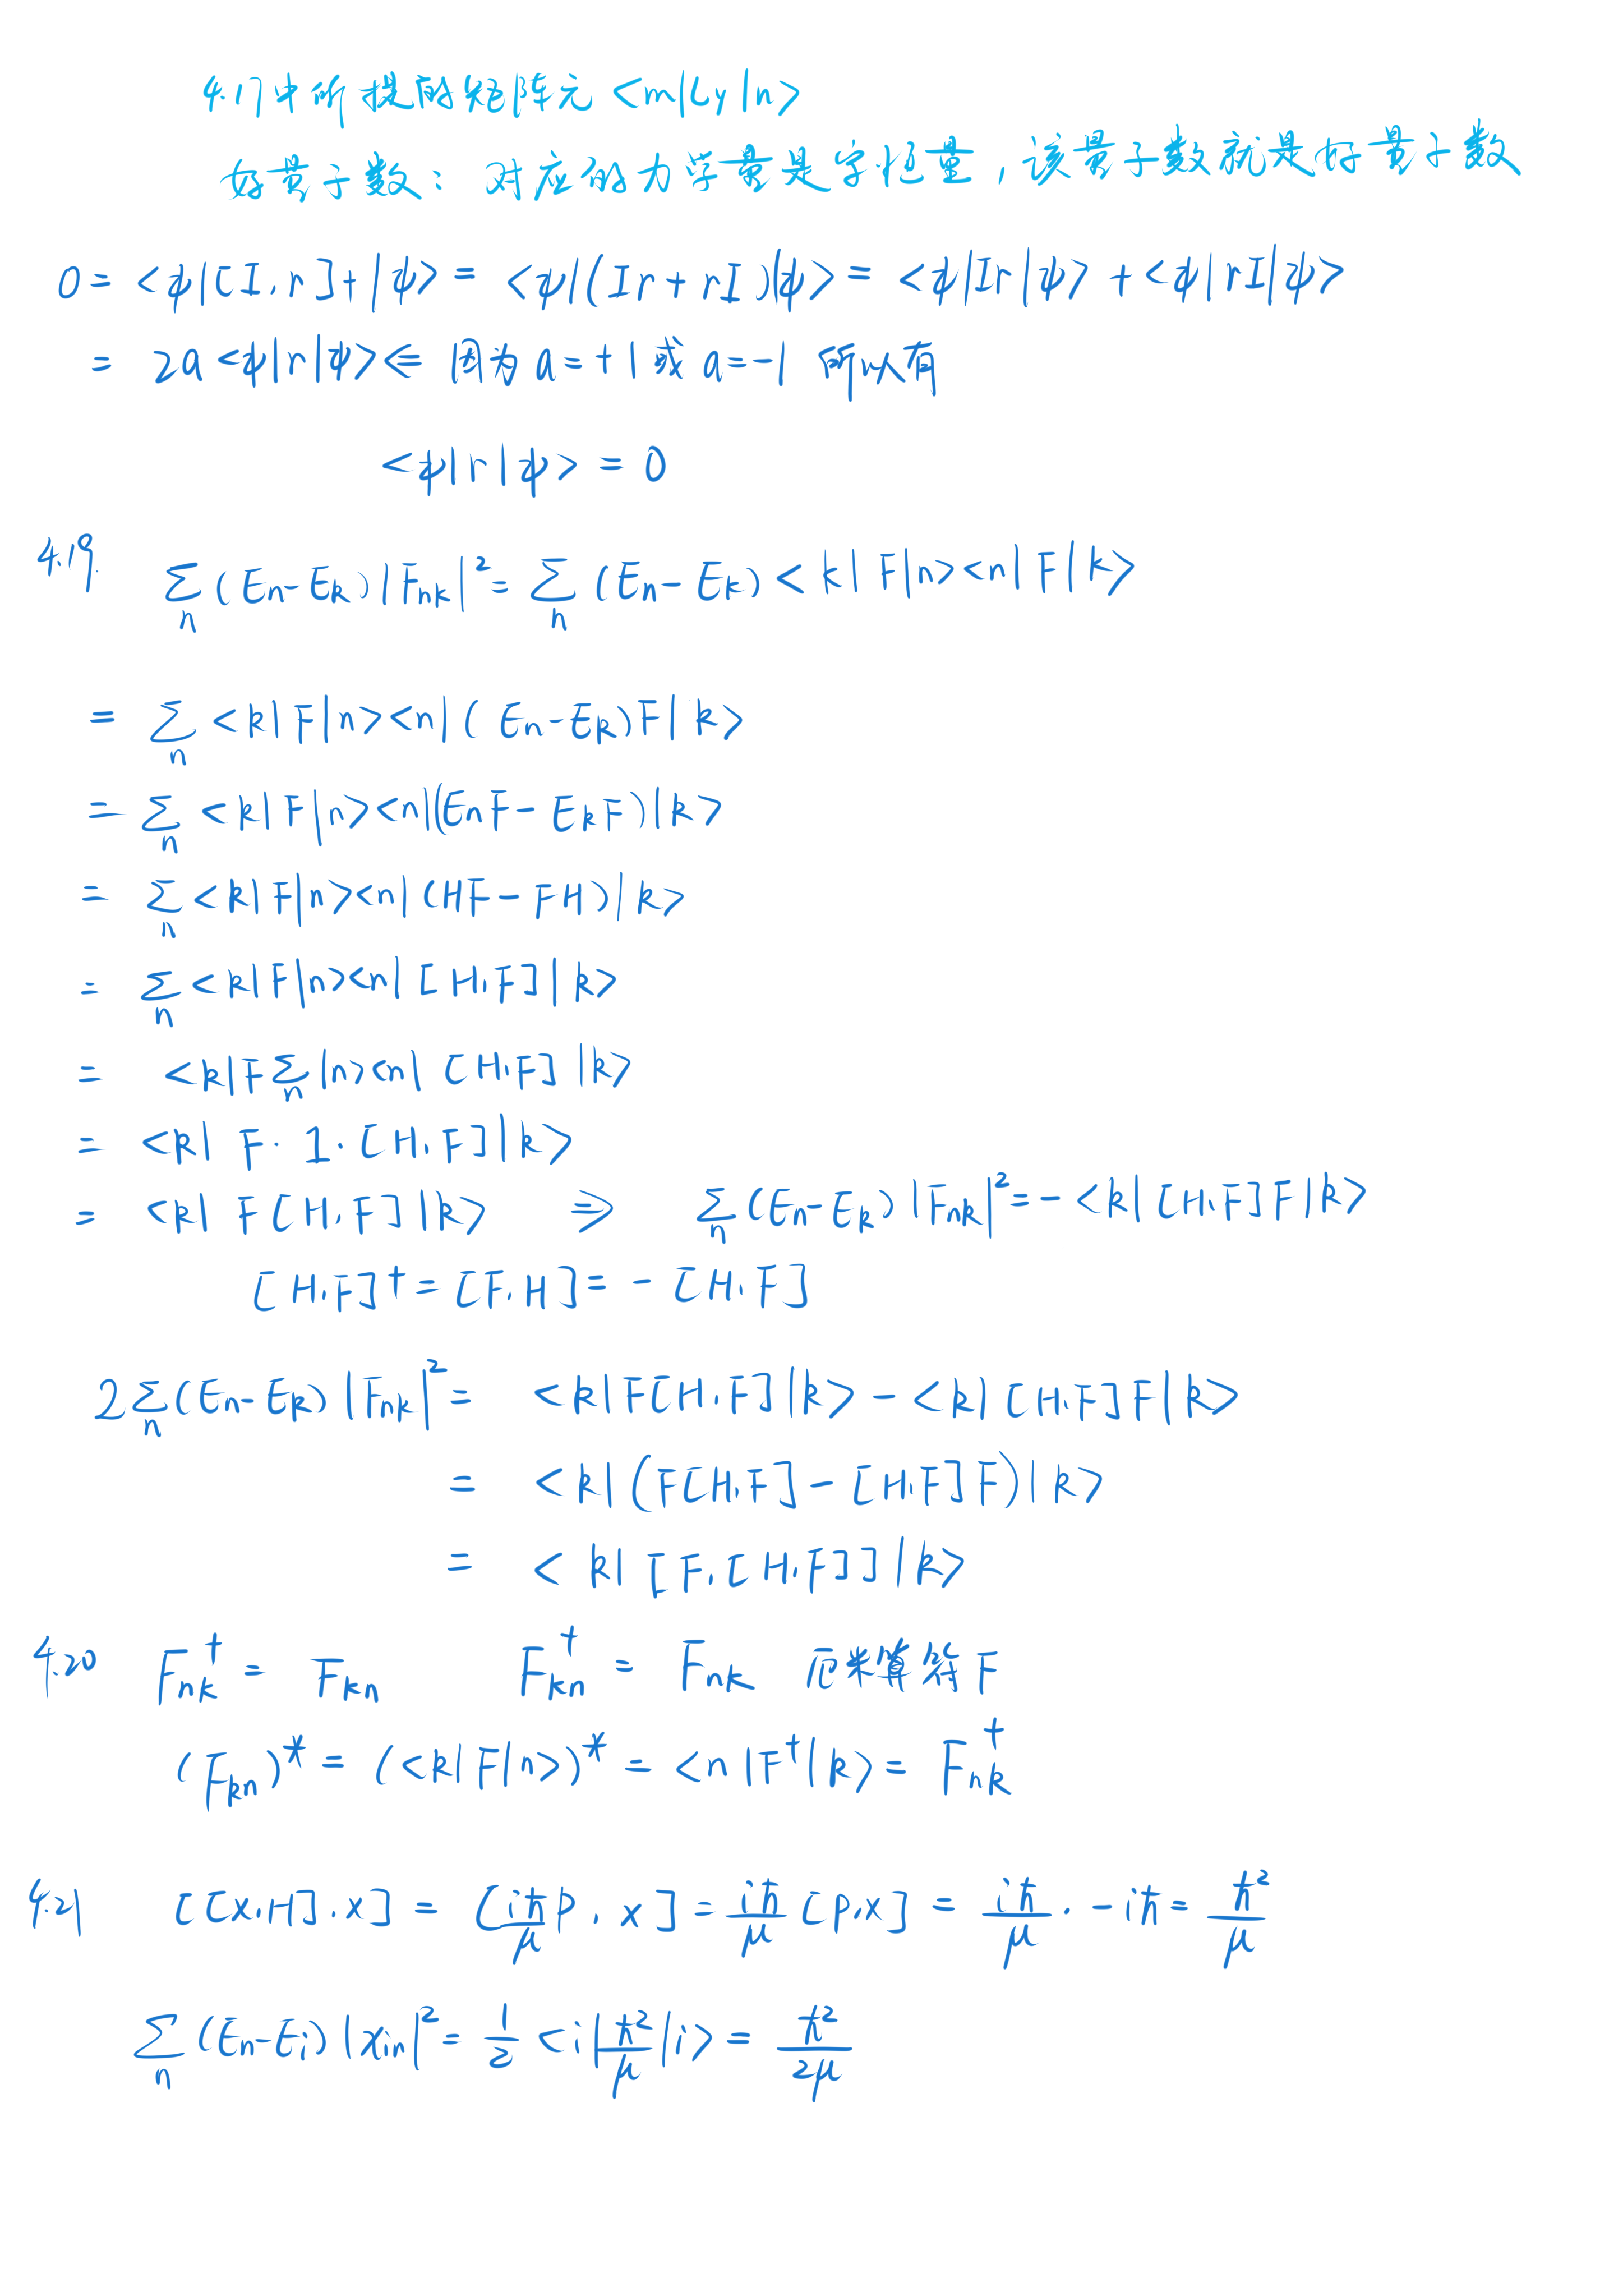 4.17中所提的矩阵元 <m|Ly|n>
好量子数: 对应的力学量是守恒量,该量子数就是好量子数
0 = <ψ|[I,r]+|ψ> = <ψ|(Ir+rI)|ψ> = <ψ|Ir|ψ> + <ψ|rI|ψ>
= 2a<ψ|r|ψ> ⇐ 因为 a=+1或 a=-1 所以有
<ψ|r|ψ> = 0
4.19. ∑_n (En-Ek)|Fnk|² = ∑_n (En-Ek)<k|F|n><n|F|k>
= ∑_n <k|F|n><n|(En-Ek)F|k>
= ∑_n <k|F|n><n|(EnF-EkF)|k>
= ∑_n <k|F|n><n|(HF-FH)|k>
= ∑_n <k|F|n><n|[H,F]|k>
= <k|F∑_n|n><n|[H,F]|k>
= <k|F·1·[H,F]|k>
= <k|F[H,F]|k> ⇒ ∑_n (En-Ek)|Fnk|² = -<k|[H,F]F|k>
[H,F]† = [F,H] = -[H,F]
2∑_n (En-Ek)|Fnk|² = <k|F[H,F]|k> - <k|[H,F]F|k>
= <k|(F[H,F]-[H,F]F)|k>
= <k|[F,[H,F]]|k>
4.20 Fnk† = Fkn Fkn† = Fnk 厄米算符F
(Fkn)* = (<k|F|n>)* = <n|F†|k> = Fnk†
4.21 [[x,H],x] = [iħ/μ p, x] = iħ/μ [p,x] = iħ/μ · -iħ = ħ²/μ
∑_n (En-Ei)|xin|² = 1/2 <i|ħ²/μ|i> = ħ²/2μ